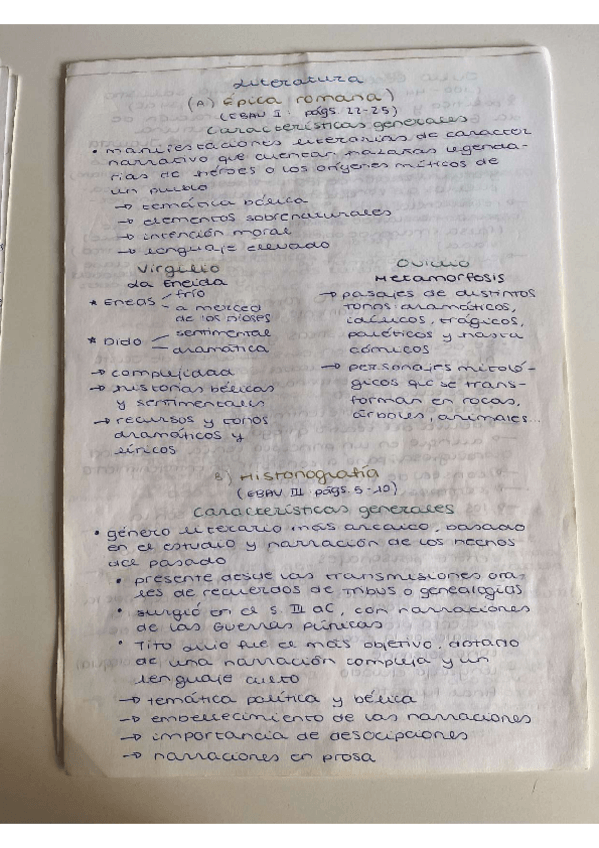 Literatura
(A) Épica romana)
(EBAU I: págs. 22-25)
Características generales
• manifestaciones literarias de carácter
narrativo que cuentan hazañas legenda-
rias de héroes o los orígenes míticos de
un pueblo
→ temática bélica
→ elementos sobrenaturales
→ intención moral
→ lenguaje elevado
Virgilio
La Eneida
* Eneas - frío
- a merced
de los dioses
* Dido - sentimental
- dramática
→ complejidad
→ historias bélicas
y sentimentales
→ recursos y tonos
dramáticos y
líricos
Ovidio
Metamorfosis
→ pasajes de distintos
tonos: dramáticos,
idílicos, trágicos,
patéticos y hasta
cómicos
→ personajes mitoló-
gicos que se trans-
forman en rocas,
árboles, animales...
B) Historiografía
(EBAU III: págs. 5-10)
Características generales
• género literario más arcaico, basado
en el estudio y narración de los hechos
del pasado
• presente desde las transmisiones ora-
les de recuerdos de tribus o genealogías
• surgió en el s. III aC, con narraciones
de las Guerras Púnicas
• Tito Livio fue el más objetivo, dotado
de una narración compleja y un
lenguaje culto
→ temática política y bélica
→ embellecimiento de las narraciones
→ importancia de descipciones
→ narraciones en prosa